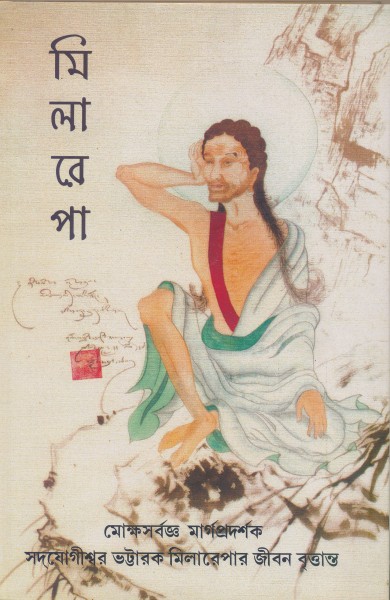 মিলারেপা
মোক্ষসর্বজ্ঞ মার্গপ্রদর্শক
সদযোগীশ্বর ভট্টারক মিলারেপার জীবন বৃত্তান্ত